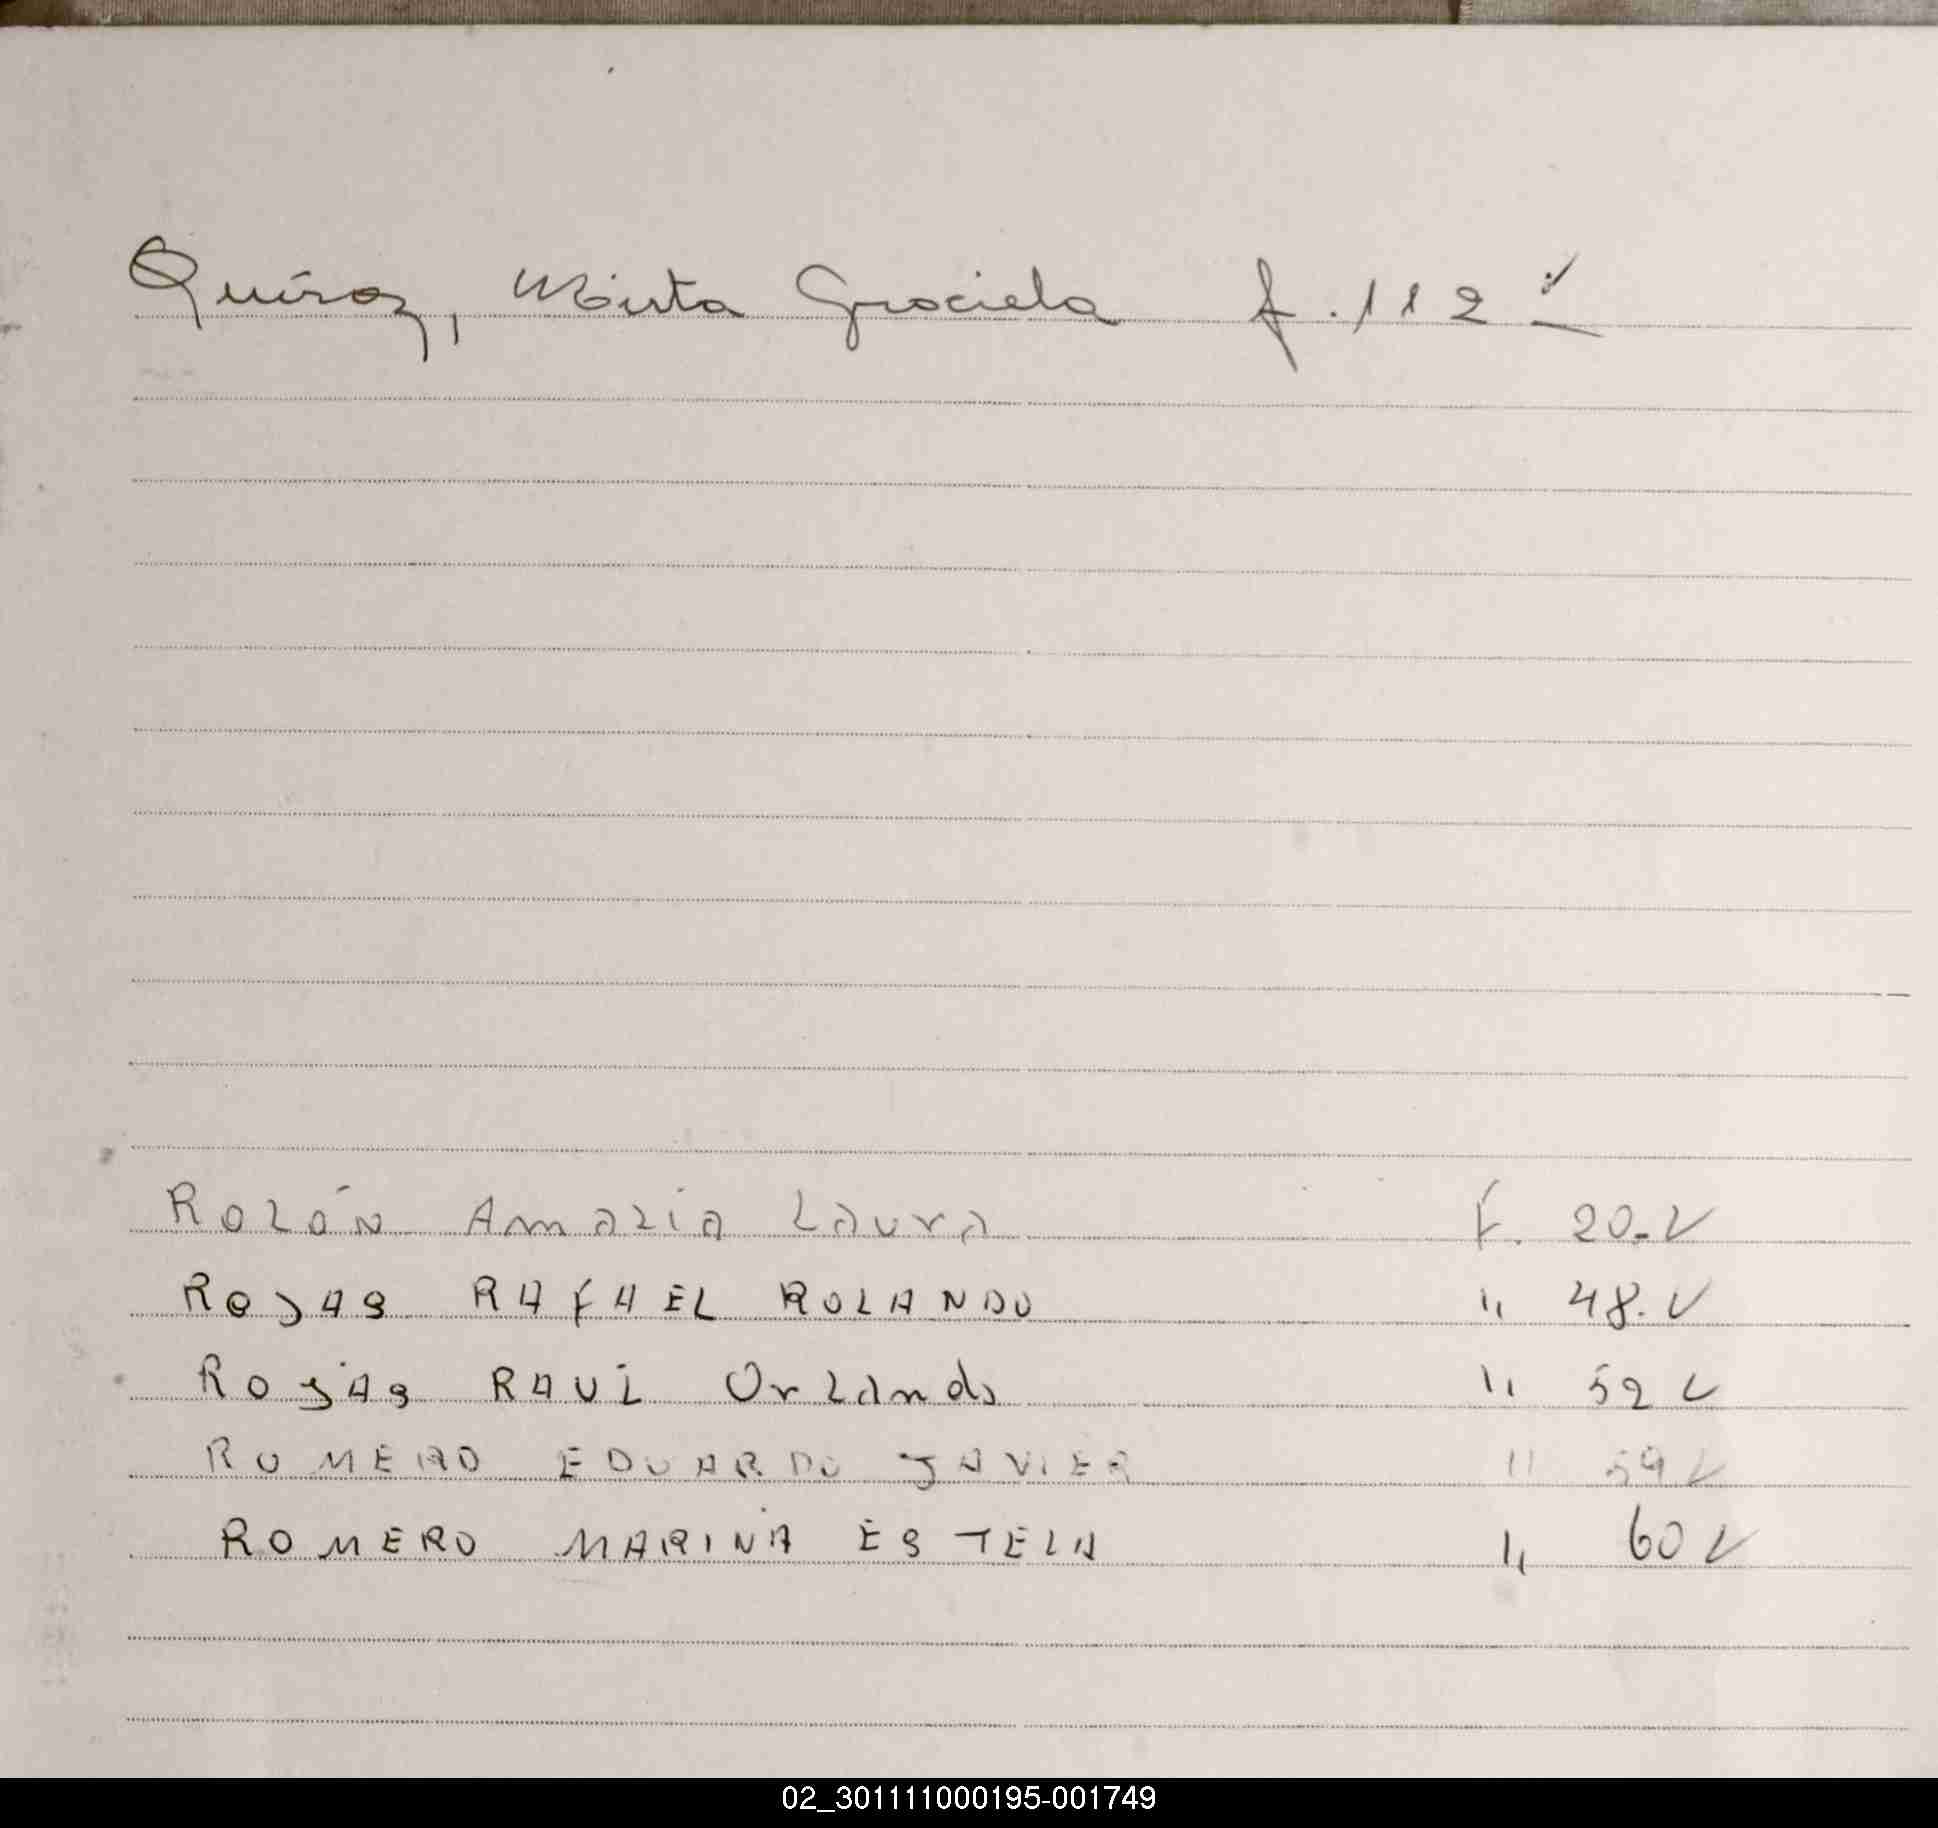 Quiroz, Mirta Graciela f. 112
ROLÓN AmALIA LAURA F. 20. ✓
ROJAS RAFAEL ROLANDO " 48. ✓
ROJAS RAUL OrLando " 52 ✓
ROMERO EDUARDO JAVIER " 59 ✓
ROMERO MARINA ESTELA " 60 ✓
02_301111000195-001749